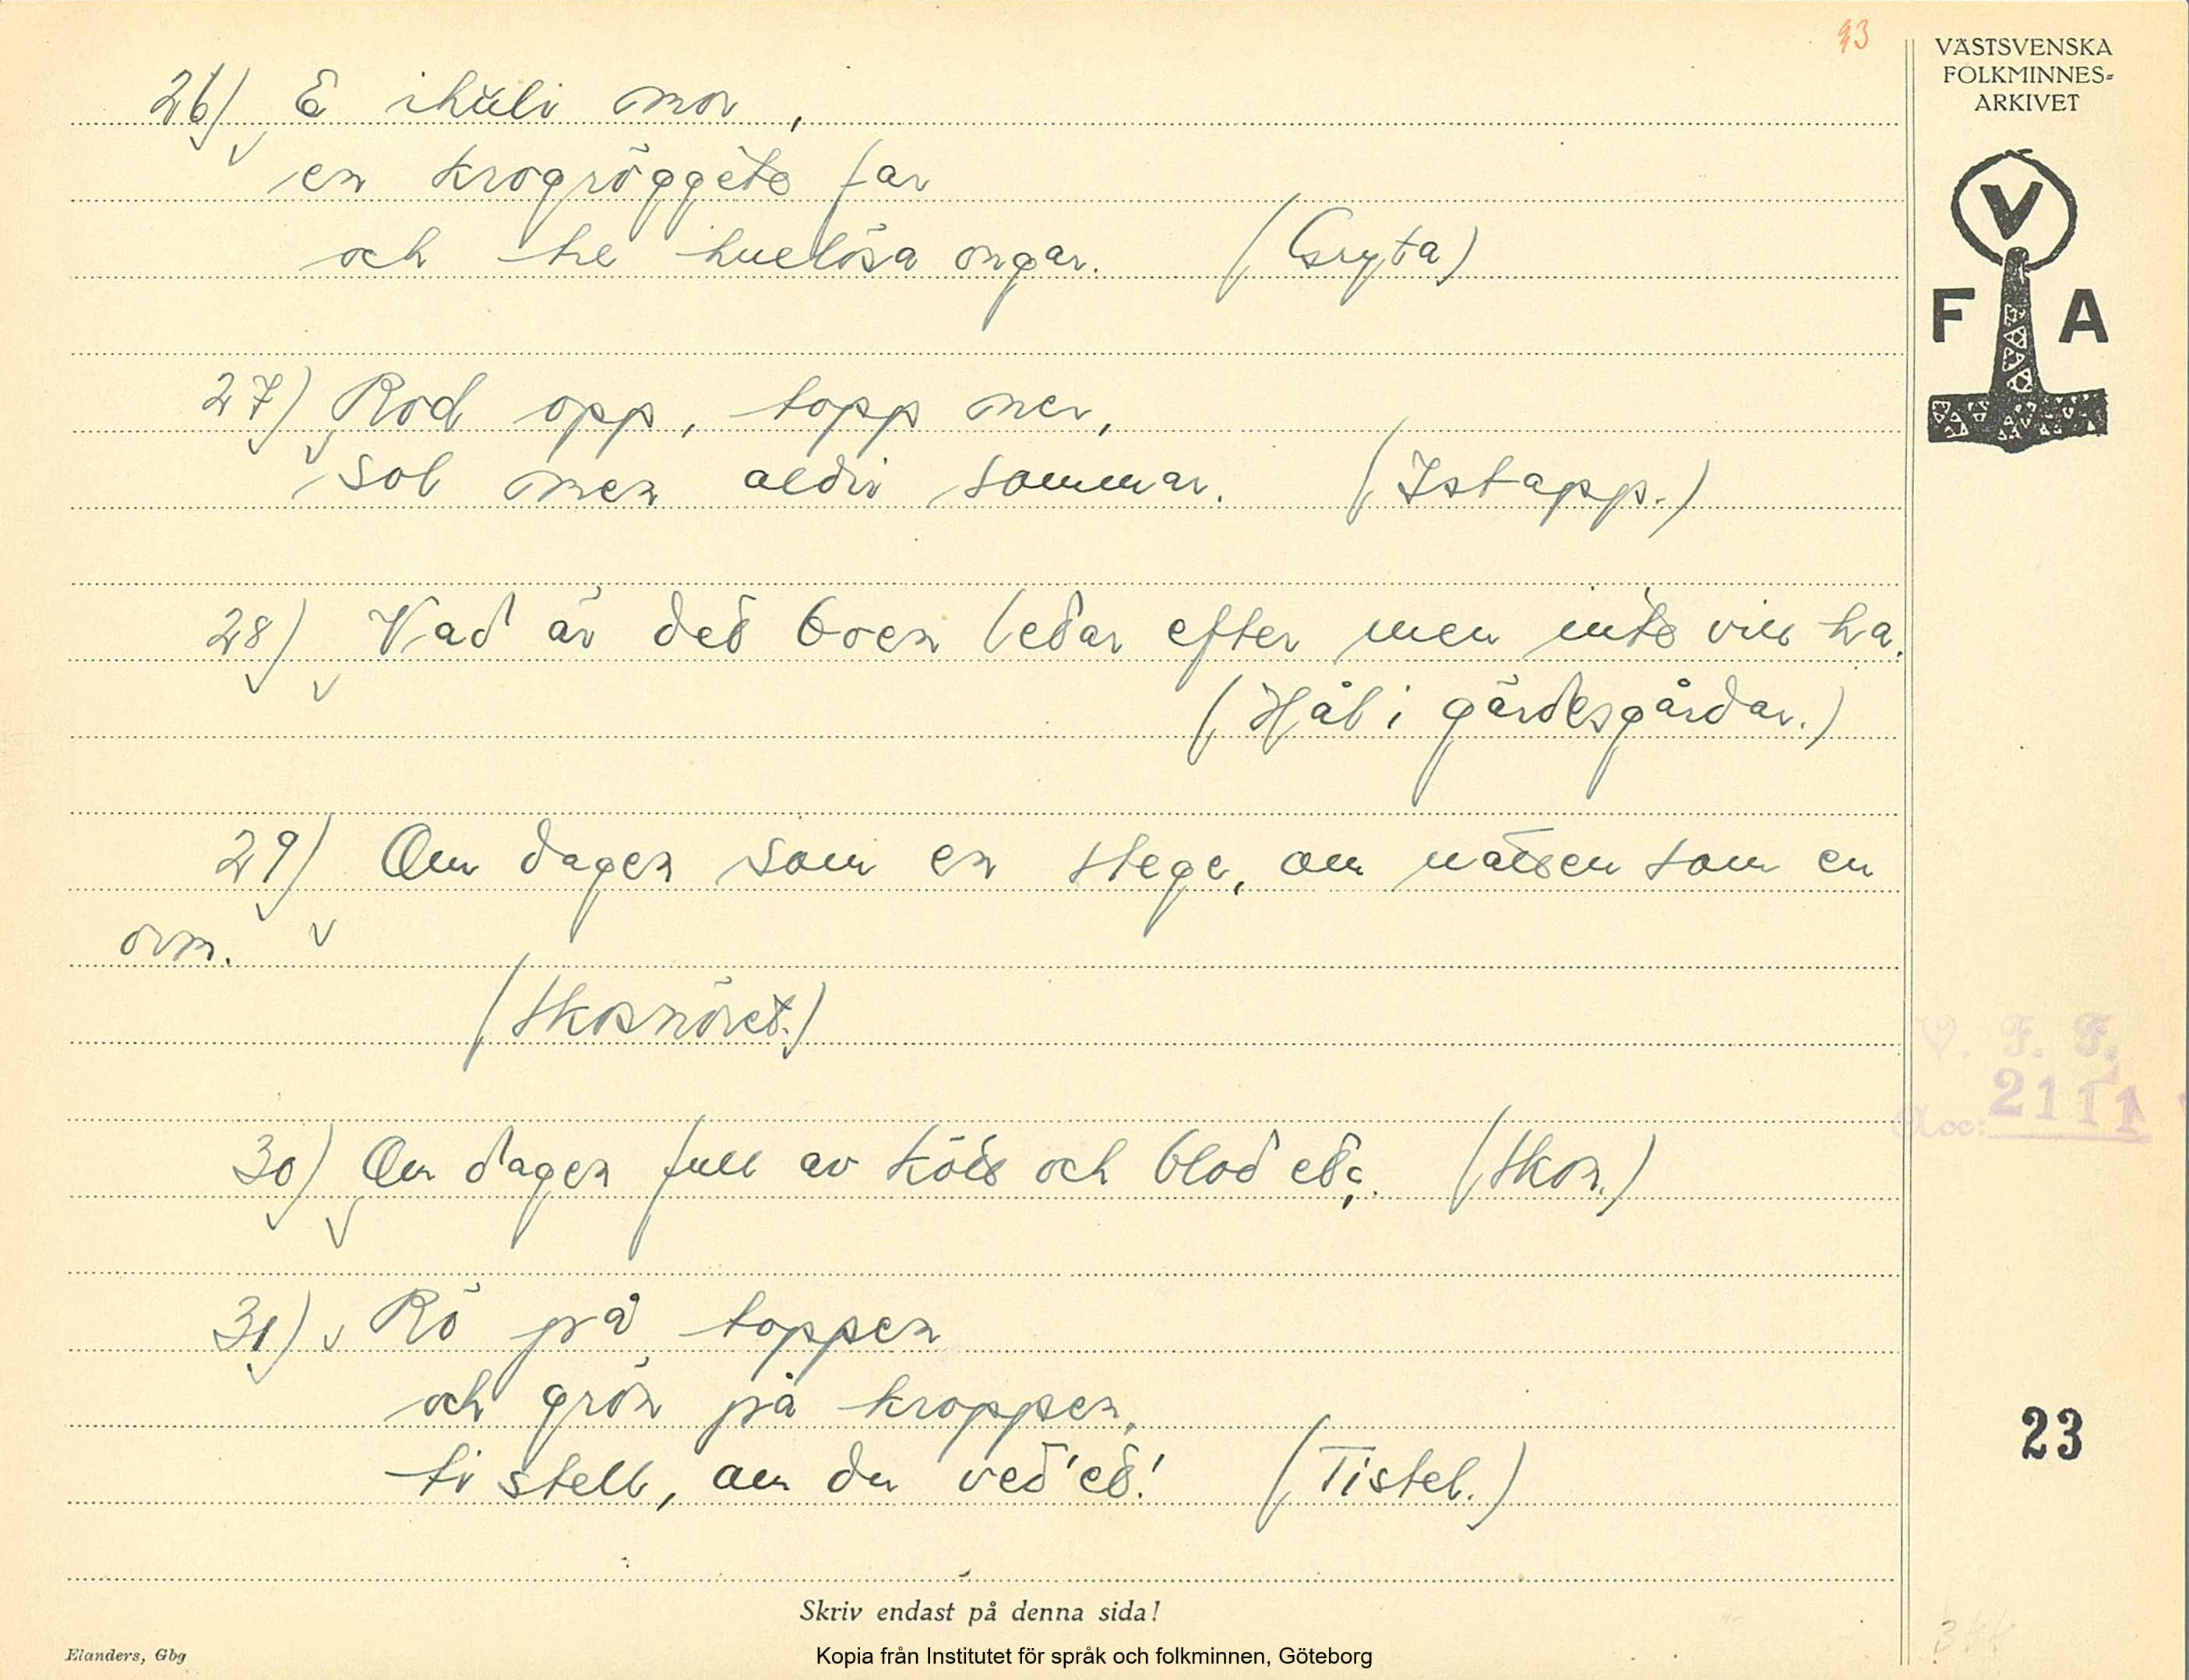 93
VÄSTSVENSKA
FOLKMINNES-
ARKIVET
V
F A
26) E ihåli mor,
en krogröggete far
och tre huelösa ongar. (Gryta)
27) Rod opp, topp ner,
sol men aldri sommar. (Istapp.)
28) Vad är det boen letar efter men inte vill ha.
(Hål i gärdesgårdar.)
29) Om dagen som en stege, om natten som en
orm.
(Skosnöret.)
30) Om dagen full av kött och blod etc. (Skon.)
31) Rö på toppen
och grön på kroppen,
ti stell, om du ved'et! (Tistel.)
V. F. F.
Acc: 2111
23
Skriv endast på denna sida!
Elanders, Gbg
Kopia från Institutet för språk och folkminnen, Göteborg